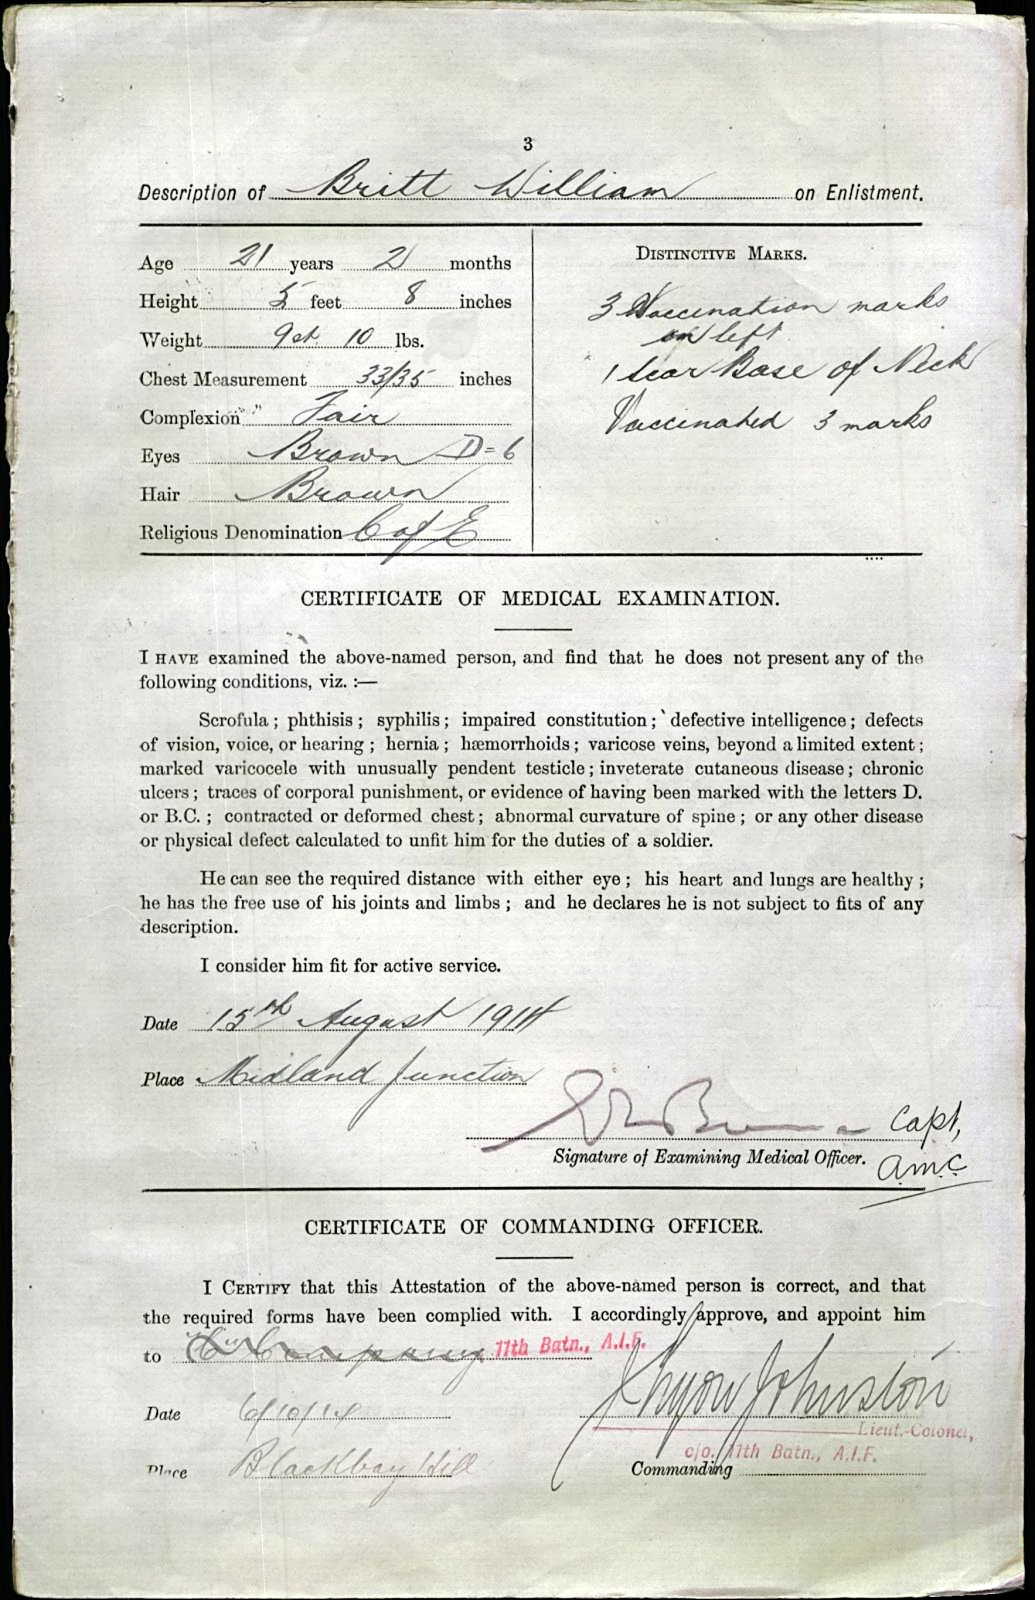 3
Description of Britt William on Enlistment.
Age 21 years 2 months
Height 5 feet 8 inches
Weight 9 st 10 lbs.
Chest Measurement 33/35 inches
Complexion Fair
Eyes Brown D=6
Hair Brown
Religious Denomination C of E
DISTINCTIVE MARKS.
3 Vaccination marks
on left
1 scar Base of Neck
Vaccinated 3 marks
CERTIFICATE OF MEDICAL EXAMINATION.
I HAVE examined the above-named person, and find that he does not present any of the
following conditions, viz. :—
Scrofula ; phthisis ; syphilis ; impaired constitution ; defective intelligence ; defects
of vision, voice, or hearing ; hernia ; hæmorrhoids ; varicose veins, beyond a limited extent ;
marked varicocele with unusually pendent testicle ; inveterate cutaneous disease ; chronic
ulcers ; traces of corporal punishment, or evidence of having been marked with the letters D.
or B.C. ; contracted or deformed chest ; abnormal curvature of spine ; or any other disease
or physical defect calculated to unfit him for the duties of a soldier.
He can see the required distance with either eye ; his heart and lungs are healthy ;
he has the free use of his joints and limbs ; and he declares he is not subject to fits of any
description.
I consider him fit for active service.
Date 15th August 1914
Place Midland Junction
Capt,
Signature of Examining Medical Officer.
A.M.C.
CERTIFICATE OF COMMANDING OFFICER.
I CERTIFY that this Attestation of the above-named person is correct, and that
the required forms have been complied with. I accordingly approve, and appoint him
to "C" Company 11th Batn., A.I.F.
Date 6/10/14
Johnston
Lieut.-Colonel,
c/o. 11th Batn., A.I.F.
Place Blackboy Hill
Commanding